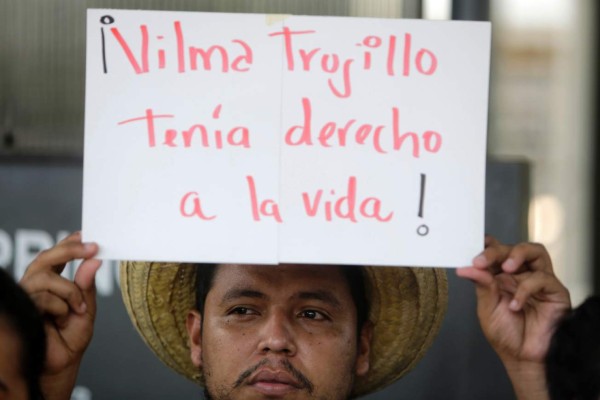 ¡Vilma Trujillo
Tenía derecho
a la vida!